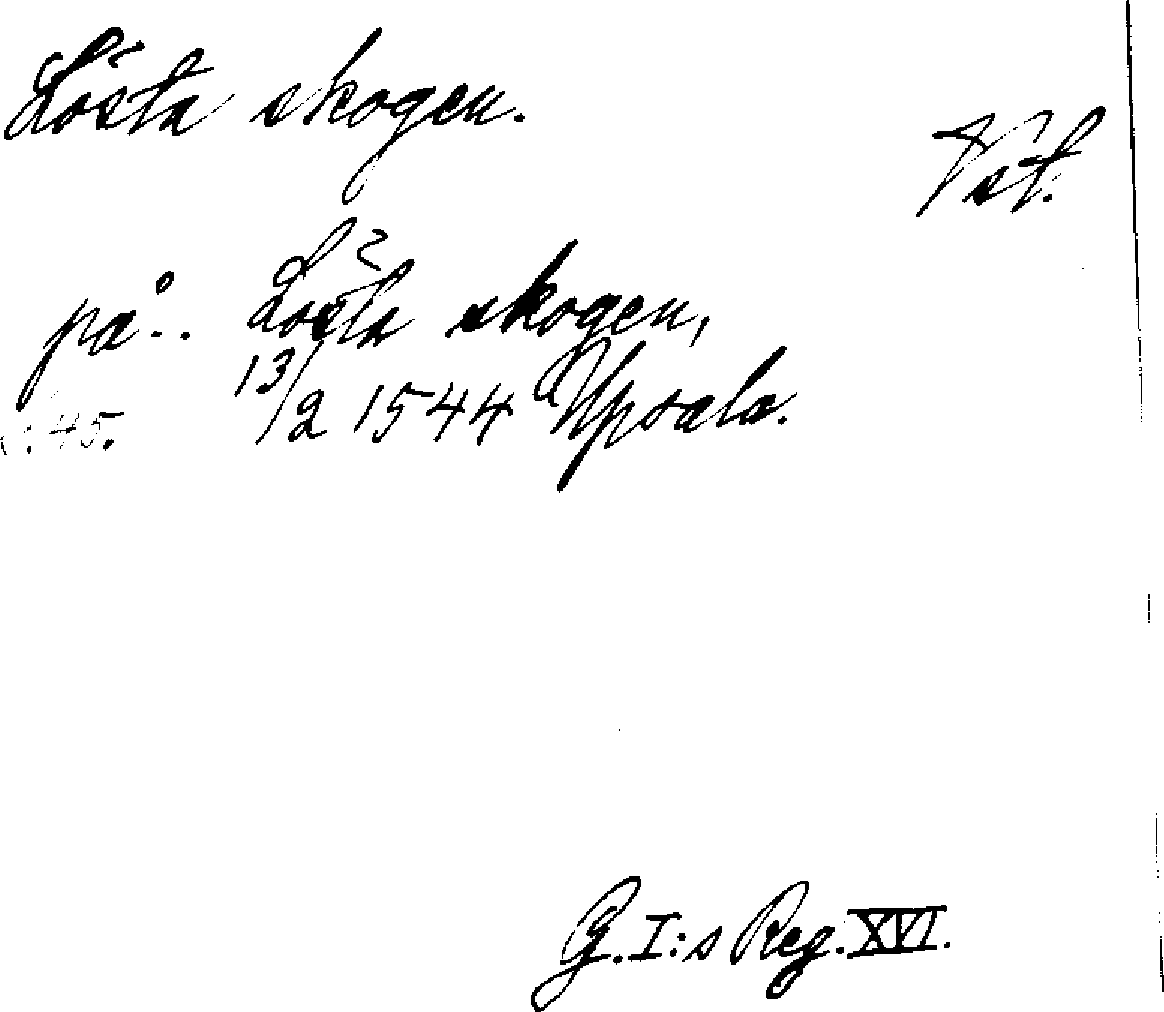 Lösta skogen.
Vst.
på.. Lösta skogen,
13/2 1544 Upsala.
s. 45.
G. I:s Reg. XVI.